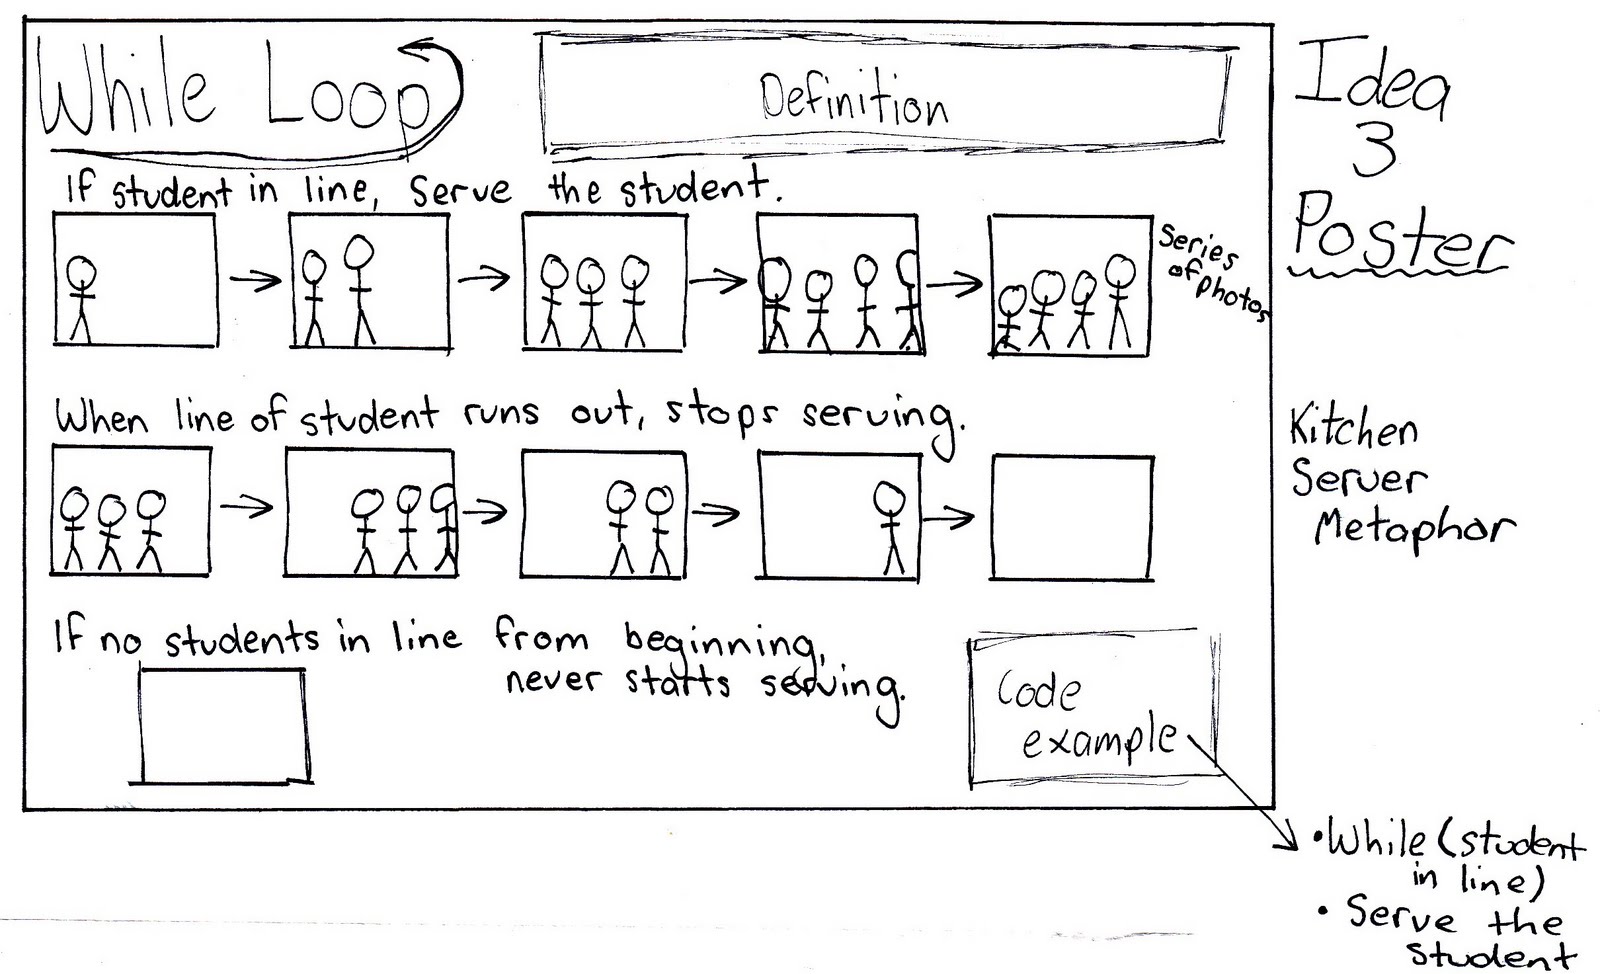 While Loop
Definition
If student in line, serve the student.
Series
of photos
When line of student runs out, stops serving.
If no students in line from beginning,
never starts serving.
Code
example
Idea
3
Poster
Kitchen
Server
Metaphor
• While (student
in line)
• Serve the
student